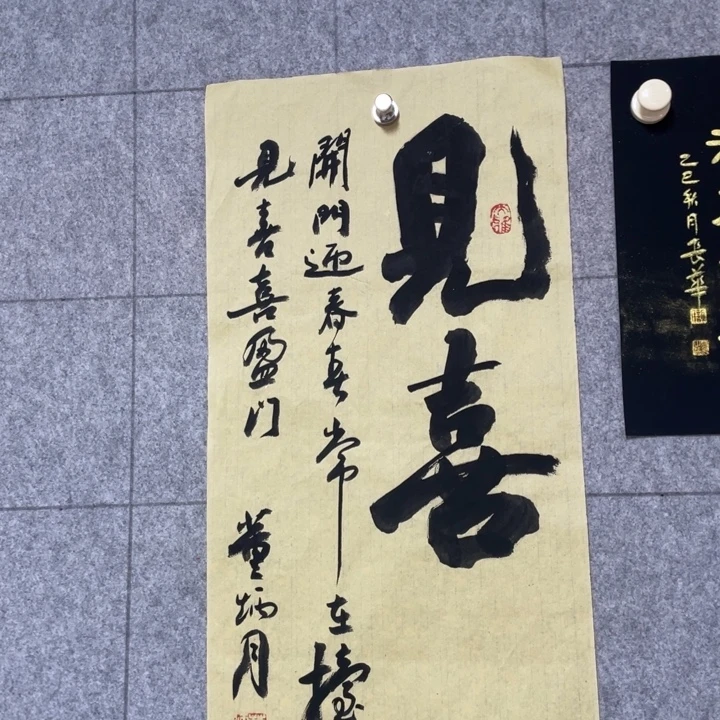 見喜
開門迎春喜常在擡
見喜喜盈门
董炳月
乙巳秋月長華